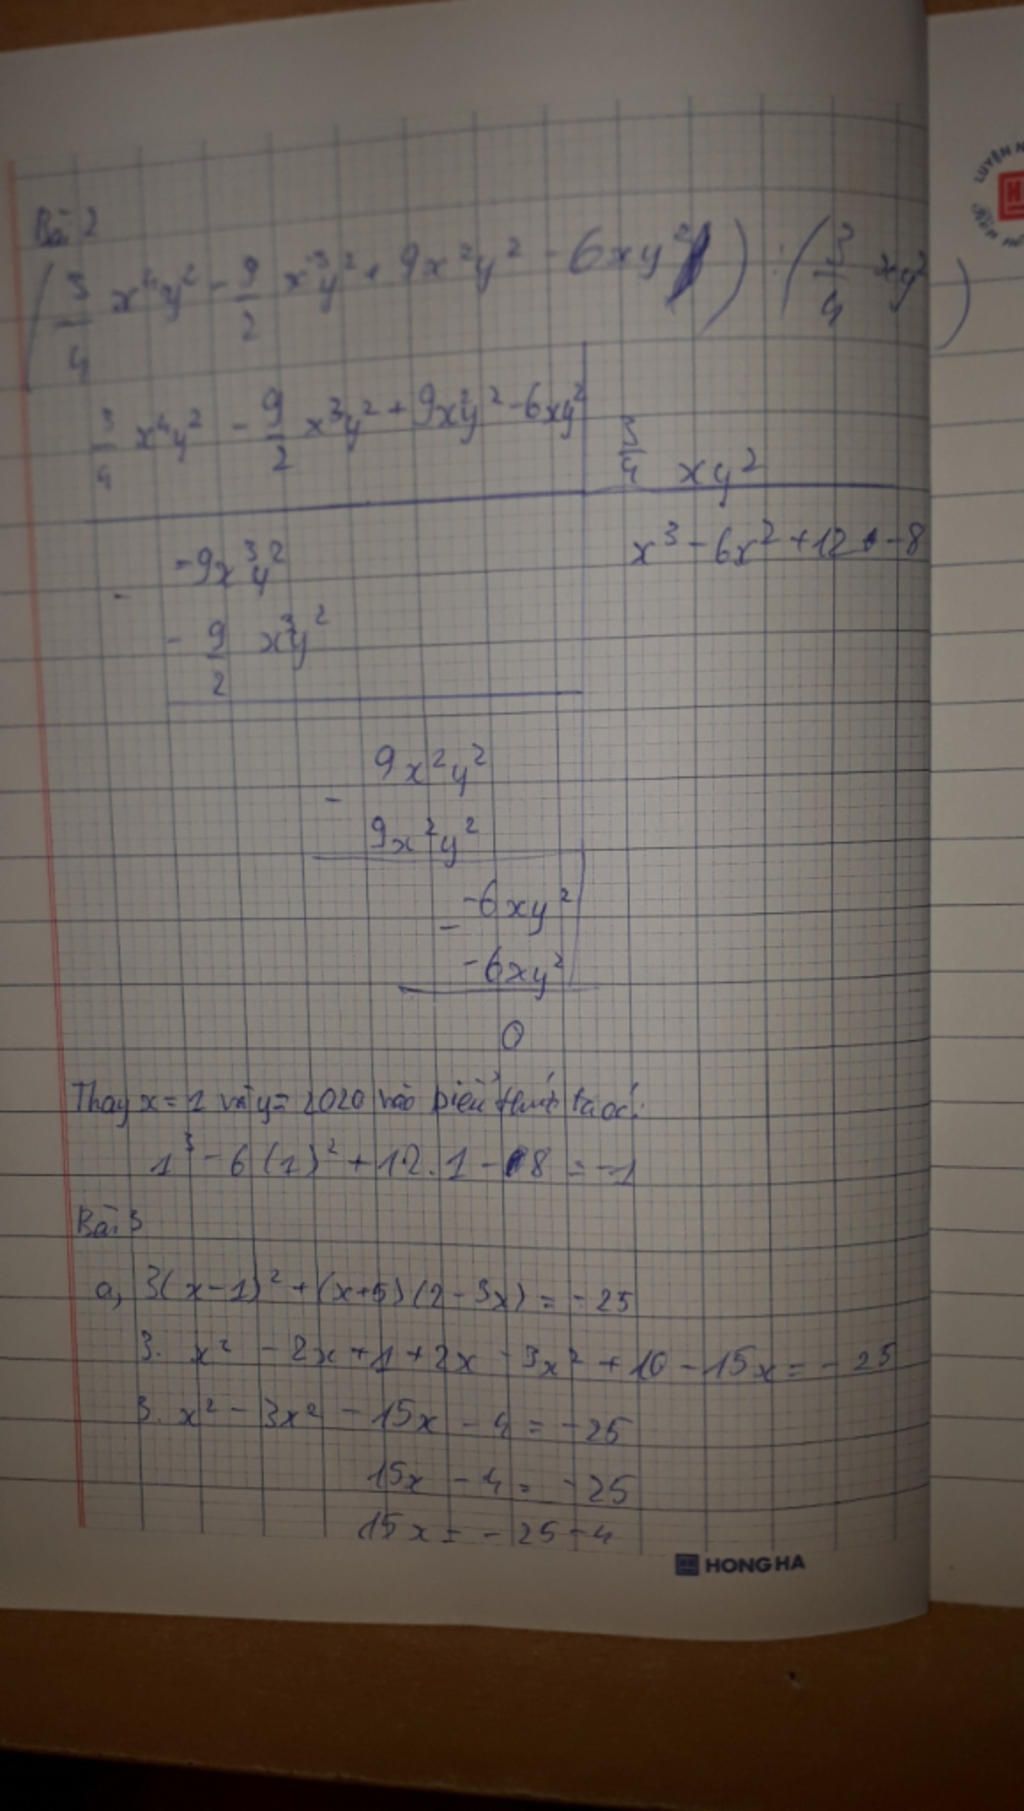 Bài 2
( 3/4 x⁴y² - 9/2 x³y² + 9x²y² - 6xy² ) : ( 3/4 xy² )
3/4 x⁴y² - 9/2 x³y² + 9x²y² - 6xy²
3/4 xy²
x³ - 6x² + 12 - 8
- -9x³y²
- 9/2 x³y²
- 9x²y²
9x²y²
- -6xy²
-6xy²
0
Thay x = 1 và y = 2020 vào biểu thức ta có:
1³ - 6(1)² + 12.1 - 8 = -1
Bài 3
a, 3(x-1)² + (x+5)(2-3x) = -25
3. x² - 2x + 1 + 2x - 3x² + 10 - 15x = -25
3. x² - 3x² - 15x - 4 = -25
15x - 4 = -25
15x = -25 - 4
HONG HA
LUYỆN N